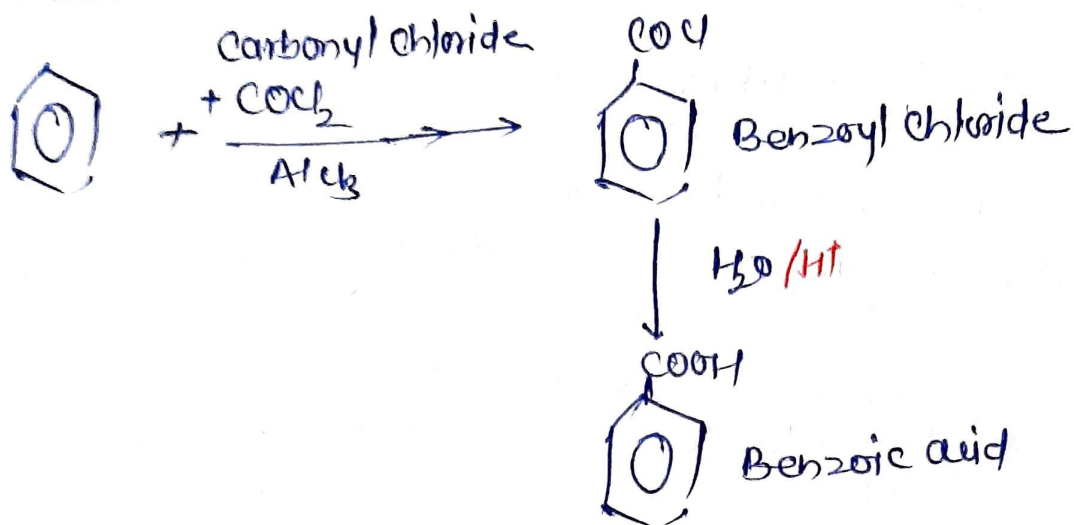 Carbonyl chloride
+ COCl2
+
AlCl3
COCl
Benzoyl chloride
H2O /H+
COOH
Benzoic acid